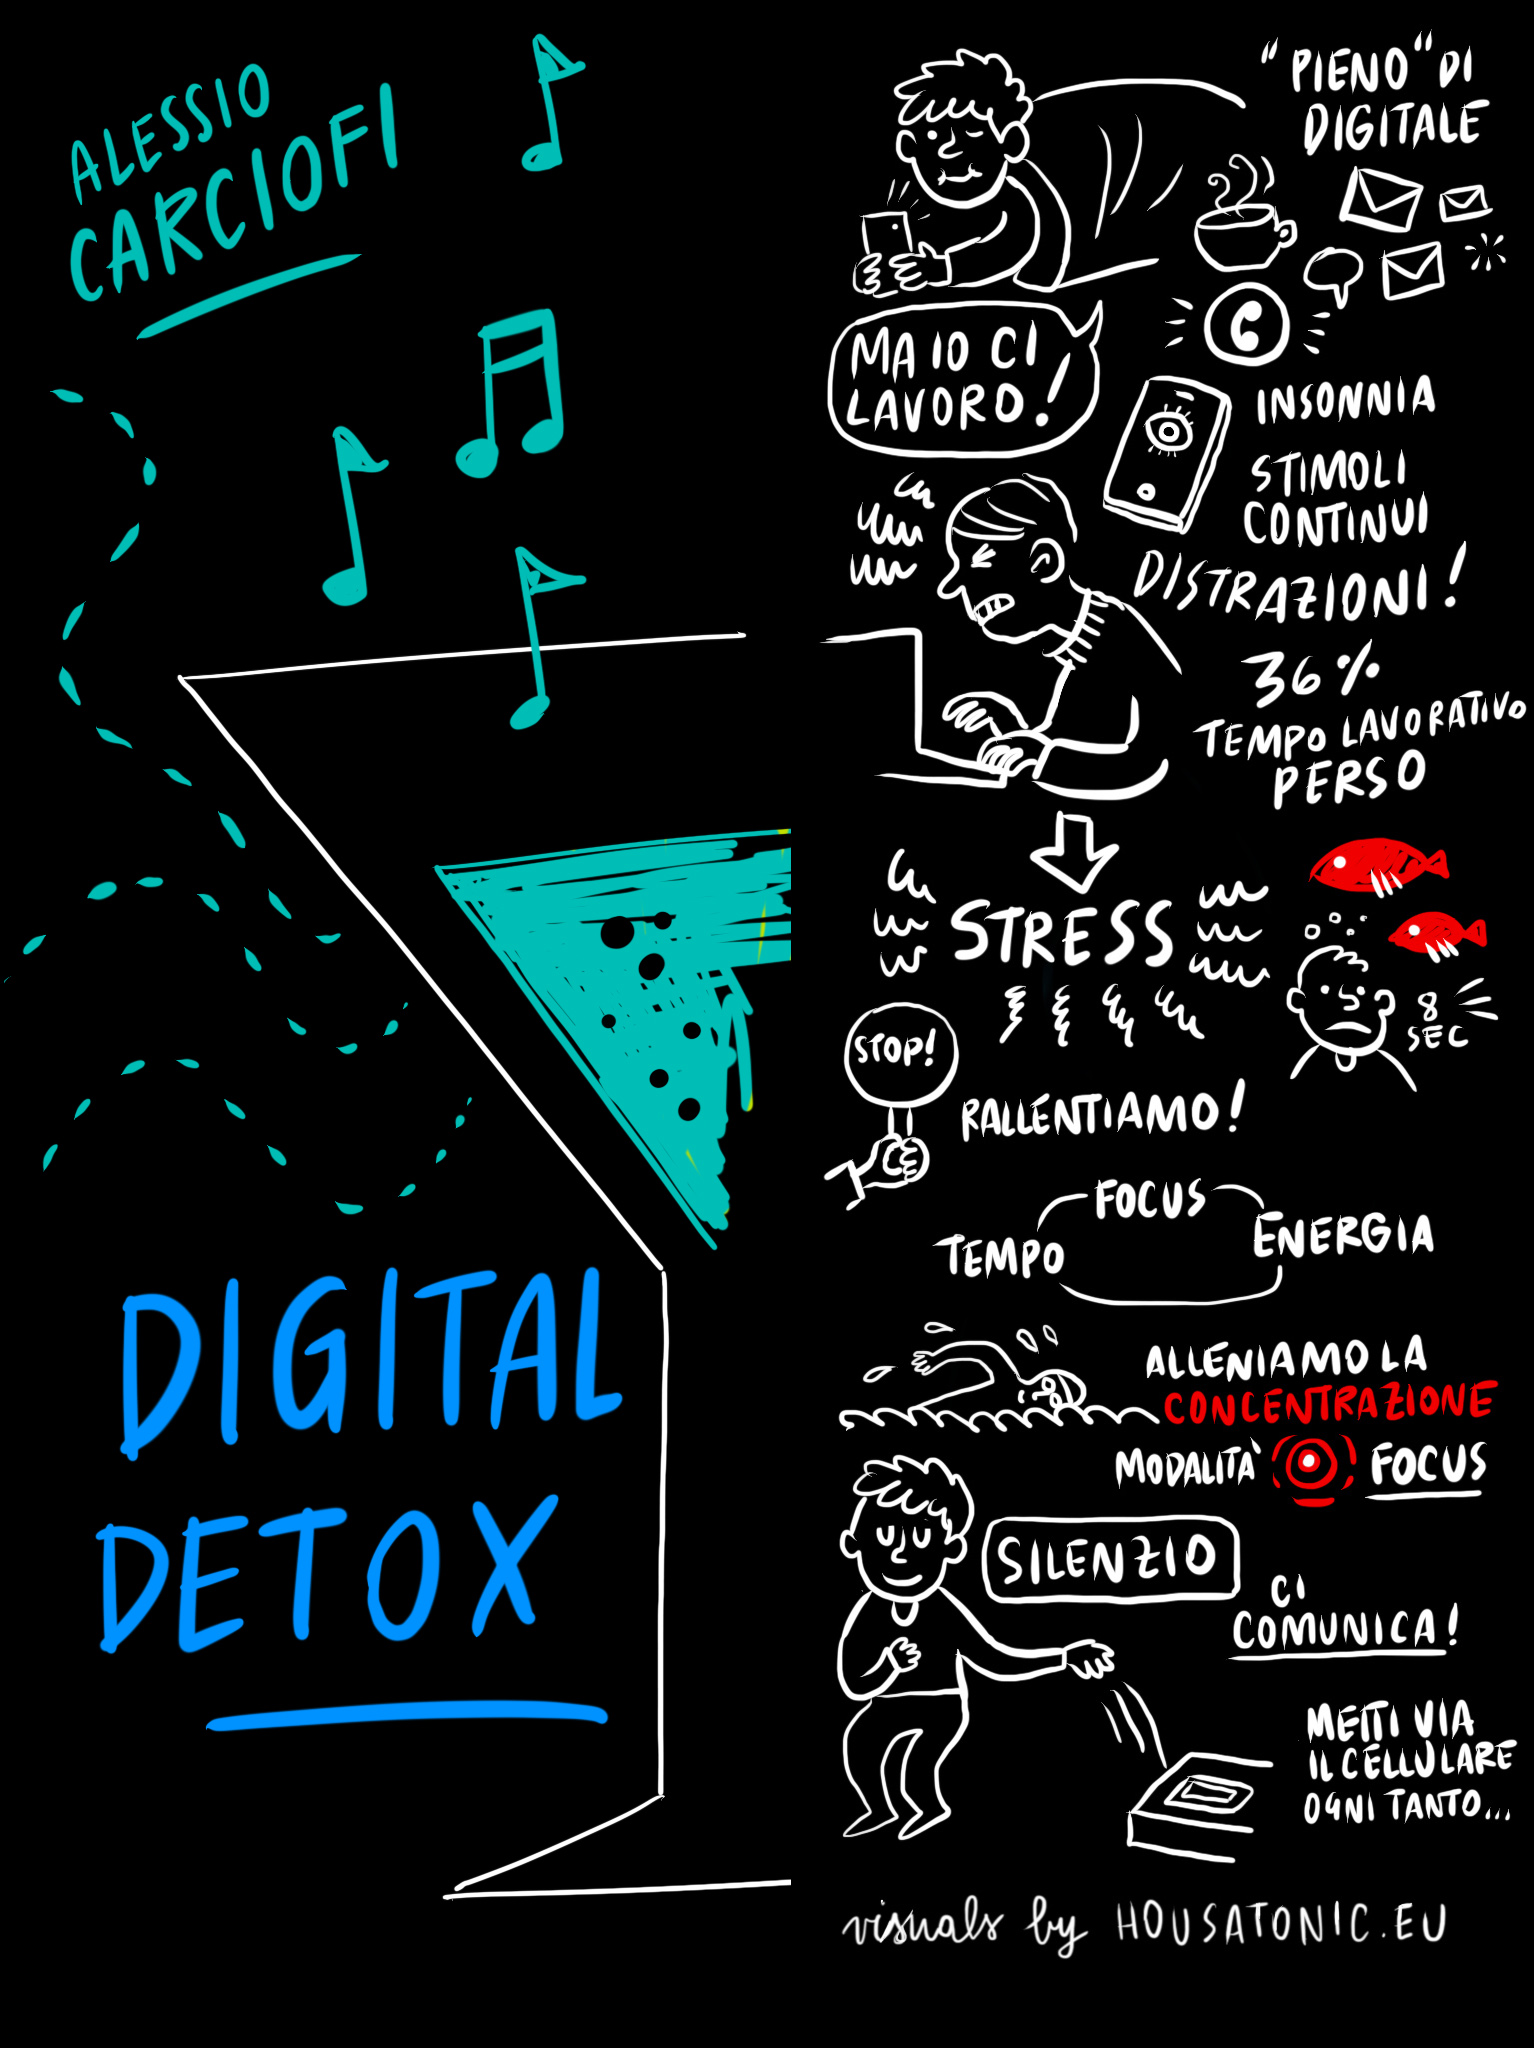 ALESSIO
CARCIOFI
DIGITAL
DETOX
"PIENO" DI
DIGITALE
MA IO CI
LAVORO!
INSONNIA
STIMOLI
CONTINUI
DISTRAZIONI!
36%
TEMPO LAVORATIVO
PERSO
STRESS
8
SEC
STOP!
RALLENTIAMO!
FOCUS
TEMPO
ENERGIA
ALLENIAMO LA
CONCENTRAZIONE
MODALITA' FOCUS
SILENZIO
CI
COMUNICA!
METTI VIA
IL CELLULARE
OGNI TANTO...
visuals by HOUSATONIC.EU